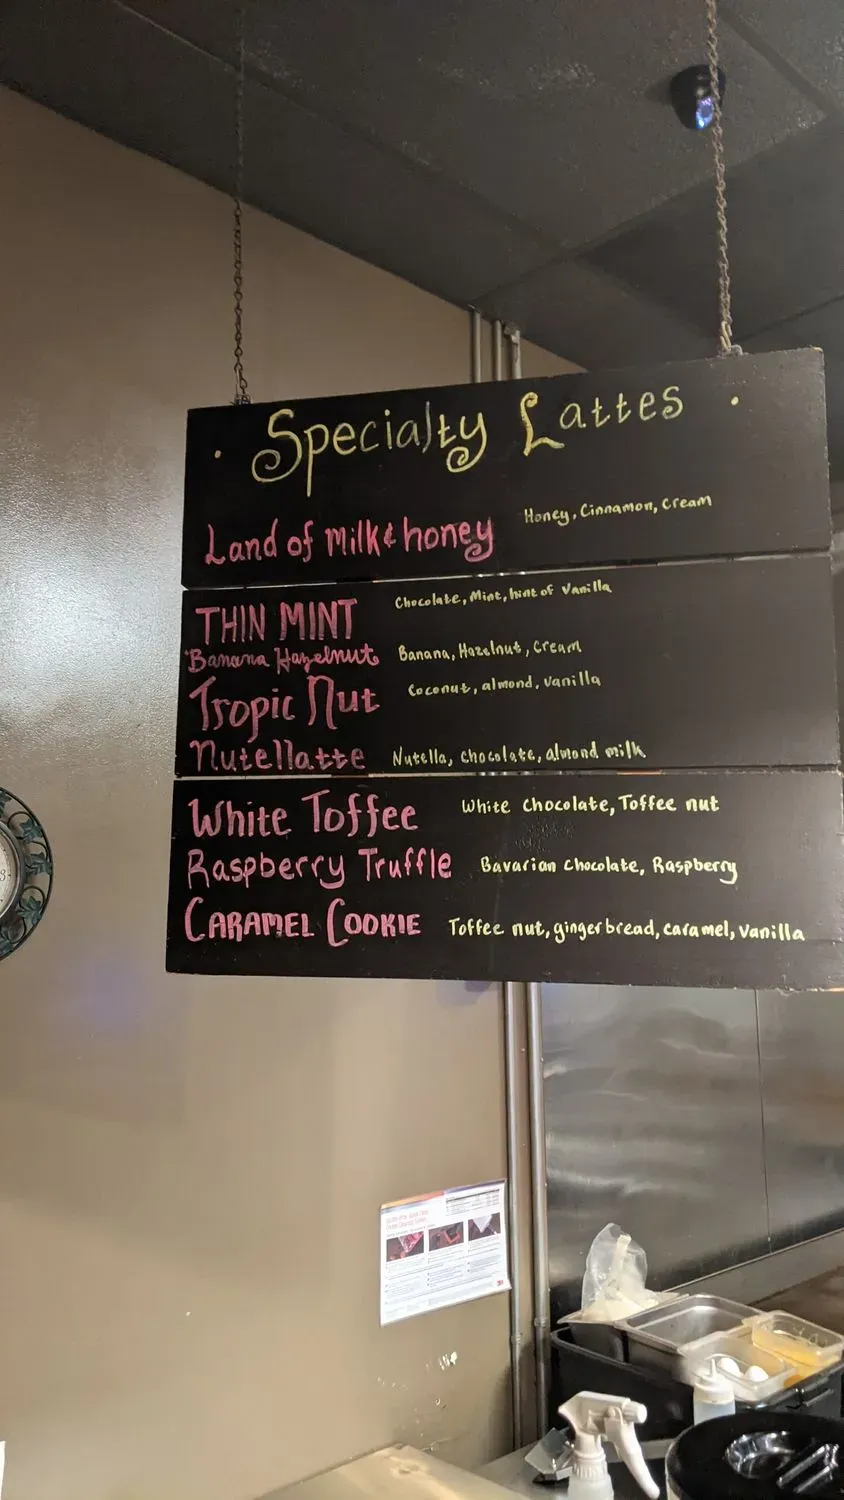 · Specialty Lattes ·
Land of Milk & honey Honey, Cinnamon, Cream
THIN MINT Chocolate, Mint, hint of Vanilla
Banana Hazelnut Banana, Hazelnut, Cream
Tropic Nut Coconut, almond, Vanilla
Nutellatte Nutella, chocolate, almond milk
White Toffee White chocolate, Toffee nut
Raspberry Truffle Bavarian chocolate, Raspberry
CARAMEL COOKIE Toffee nut, gingerbread, caramel, vanilla